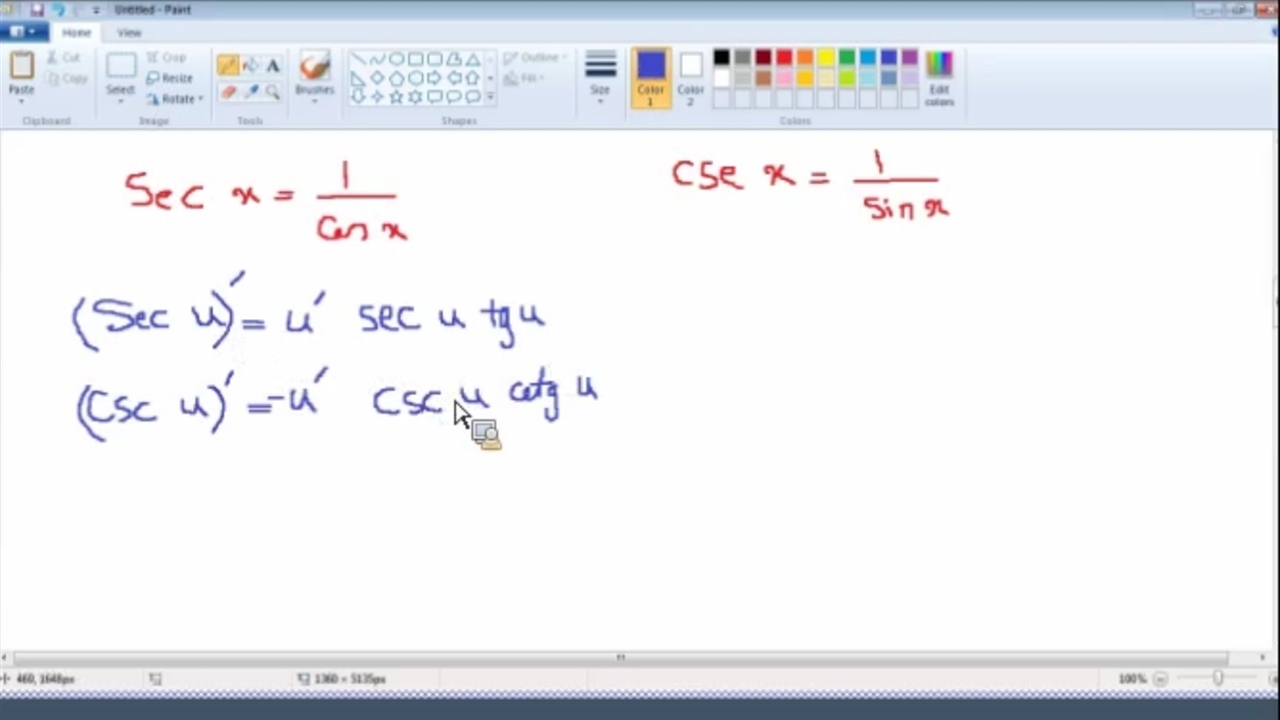 Untitled - Paint
Home View
Paste
Cut
Copy
Clipboard
Select
Crop
Resize
Rotate
Image
A
Tools
Brushes
Outline
Fill
Shapes
Size
Color 1
Color 2
Edit colors
Colors
Sec x = 1/Cos x
Csc x = 1/Sin x
(Sec u)′ = u′ sec u tg u
(Csc u)′ = -u′ Csc u cotg u
460, 1648px
1360 × 5135px
100%